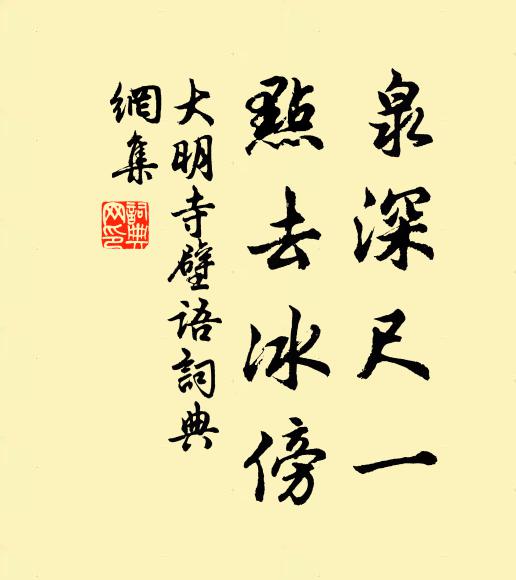 泉深尺一
點去冰傍
大明寺壁語詞典
網集
詞典
網印